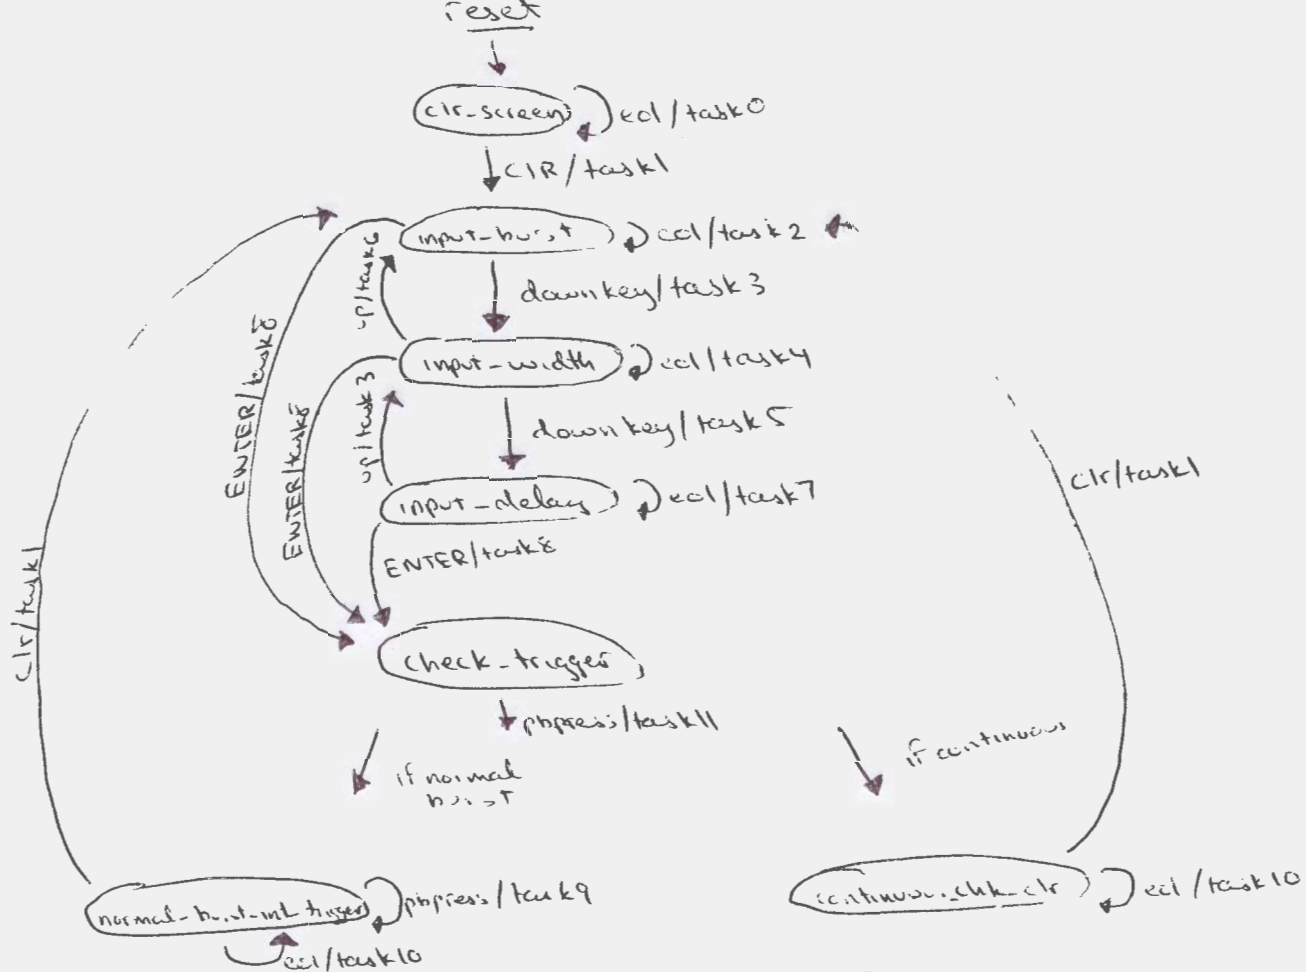 reset
clr_screen
eol/task0
ClR/task1
input_burst
eol/task2
up/task6
downkey/task3
ENTER/task8
input_width
eol/task4
ENTER/task8
up/task3
downkey/task5
input_delay
eol/task7
clr/task1
ENTER/task8
clr/task1
check_trigger
pbpress/task11
if normal
burst
if continuous
normal_burst_int_trigger
pbpress/task9
eol/task10
continuous_chk_clr
eol/task10